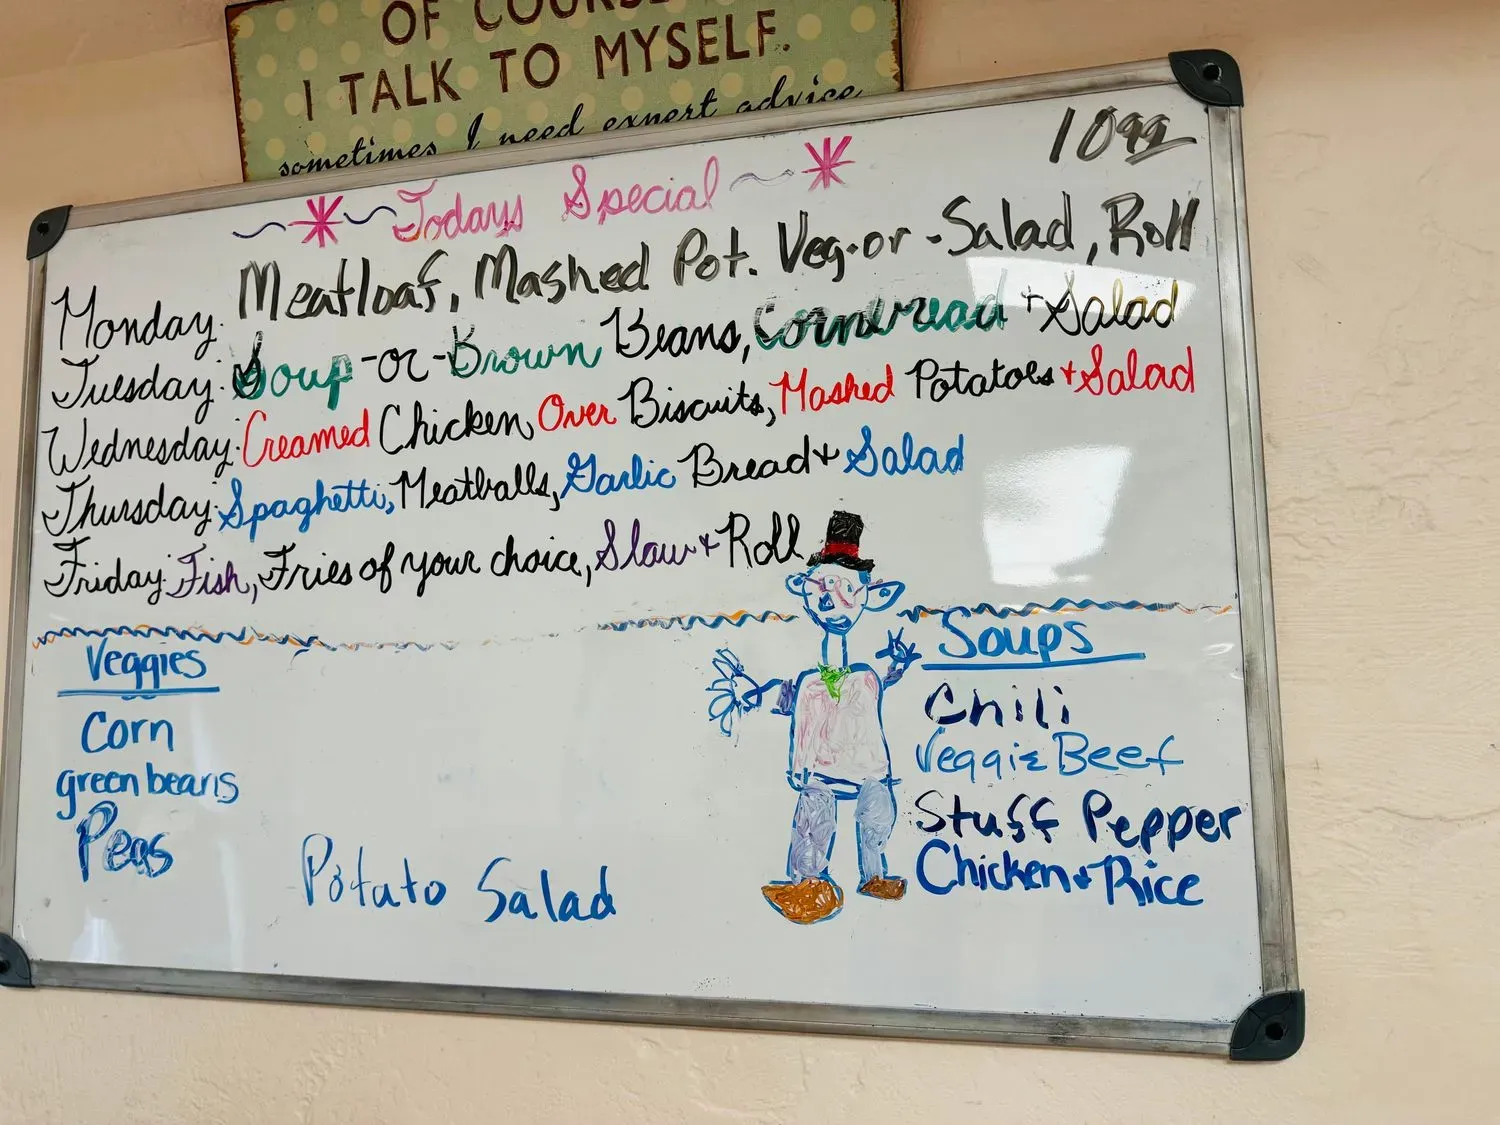 OF COURSE
I TALK TO MYSELF.
sometimes I need expert advice
10 99
Todays Special
Monday: Meatloaf, Mashed Pot. Veg-or-Salad, Roll
Tuesday: Soup-or-Brown Beans, Cornbread + Salad
Wednesday: Creamed Chicken, Over Biscuits, Mashed Potatoes + Salad
Thursday: Spaghetti, Meatballs, Garlic Bread + Salad
Friday: Fish, Fries of your choice, Slaw + Roll
Veggies
Corn
green beans
Peas
Potato Salad
Soups
Chili
Veggie Beef
Stuff Pepper
Chicken + Rice